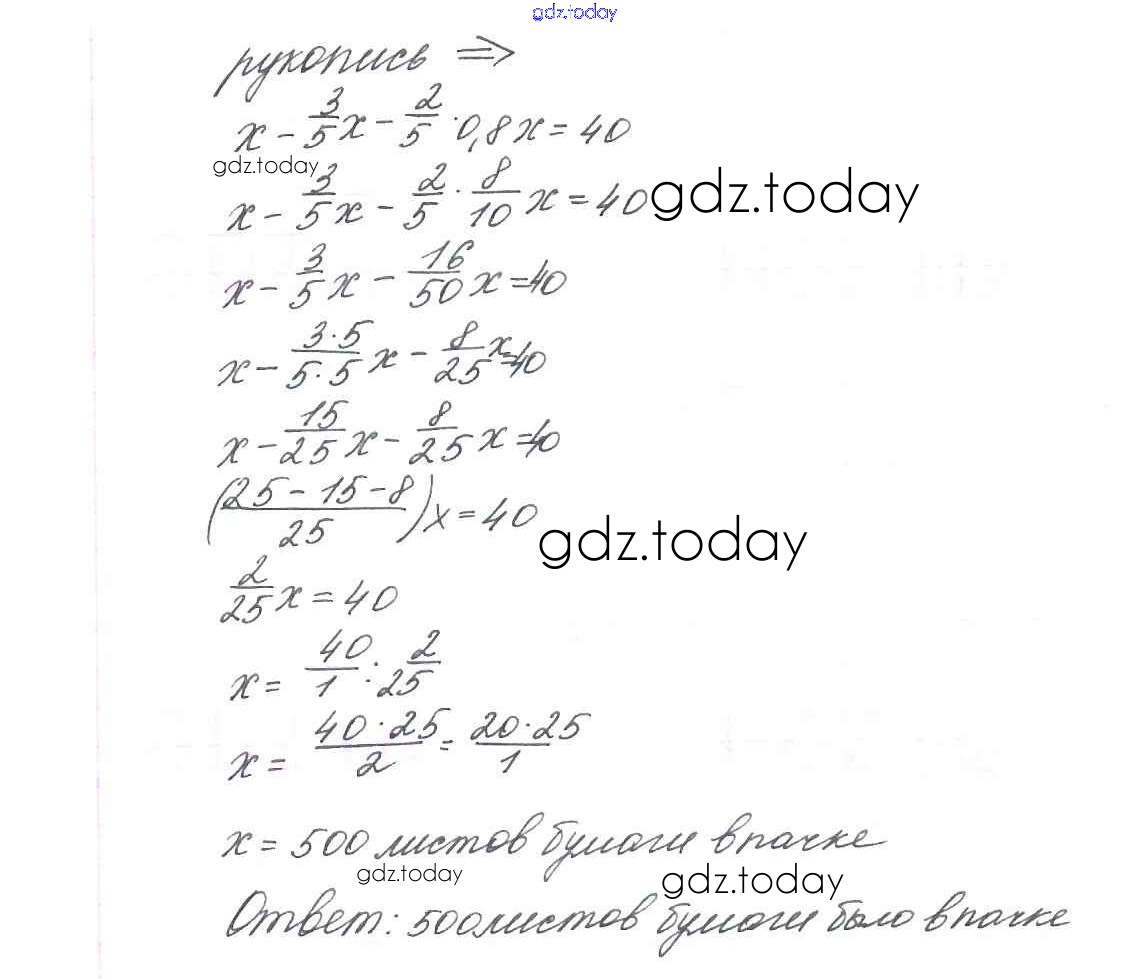 gdz.today
рукопись ⇒
x - 3/5 x - 2/5 · 0,8x = 40
gdz.today
x - 3/5 x - 2/5 · 8/10 x = 40 gdz.today
x - 3/5 x - 16/50 x = 40
x - 3·5/5·5 x - 8/25 x = 40
x - 15/25 x - 8/25 x = 40
(25 - 15 - 8/25) x = 40 gdz.today
2/25 x = 40
x = 40/1 : 2/25
x = 40·25/2 = 20·25/1
x = 500 листов бумаги в пачке
gdz.today gdz.today
Ответ: 500 листов бумаги было в пачке